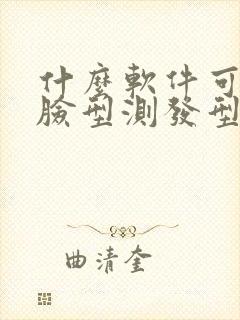 什麼軟件可
臉型測發型
曲清奎